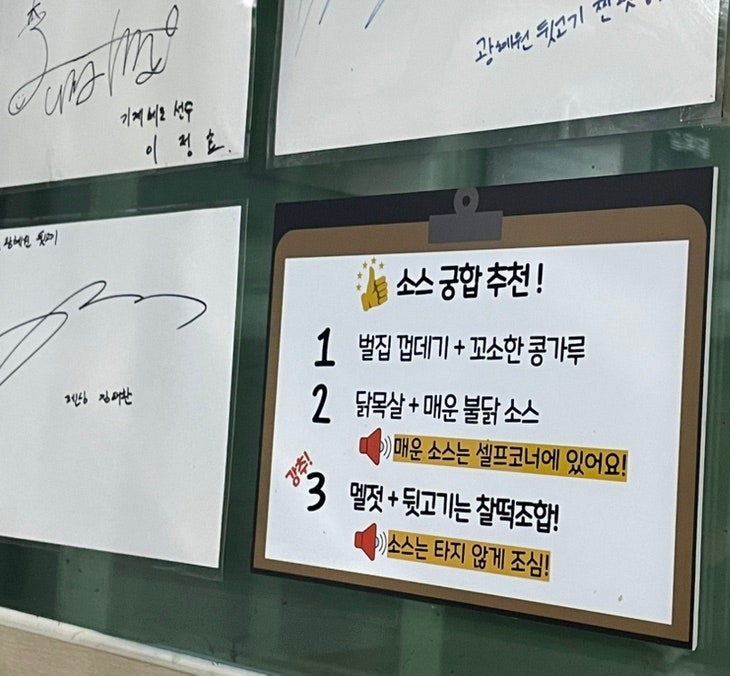 기계체조 선수
이 정 효.
광혜원 뒷고기
광혜원 뒷고기
소스 궁합 추천!
1 벌집 껍데기 + 꼬소한 콩가루
2 닭목살 + 매운 불닭 소스
매운 소스는 셀프코너에 있어요!
강추!
3 멜젓 + 뒷고기는 찰떡조합!
소스는 타지 않게 조심!